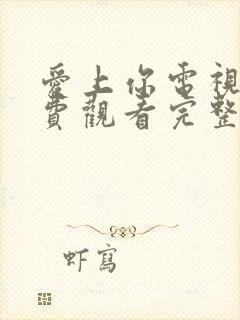 愛上你電視
費觀看完整
虾寫